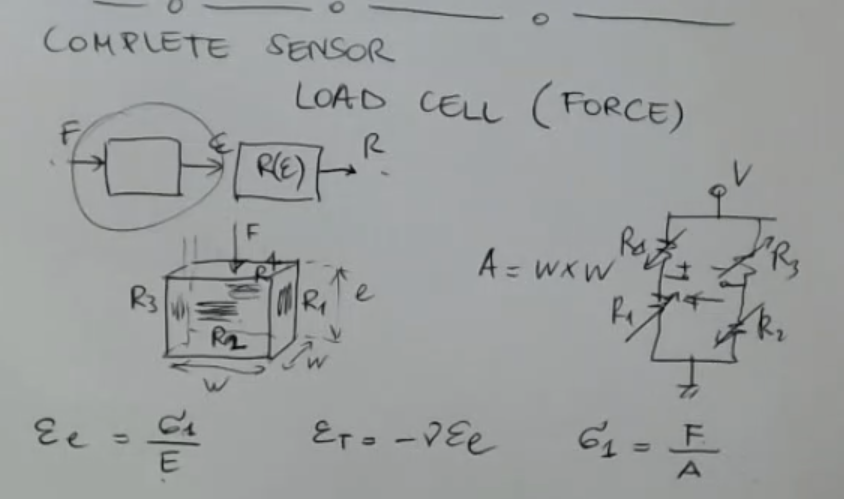 COMPLETE SENSOR
LOAD CELL (FORCE)
F ε R(ε) R
F
R4
R3 R1 e
R2
W W
A = W×W
V
R4 R3
± 
R1 R2
εe = σ1/E εT = -νεe σ1 = F/A